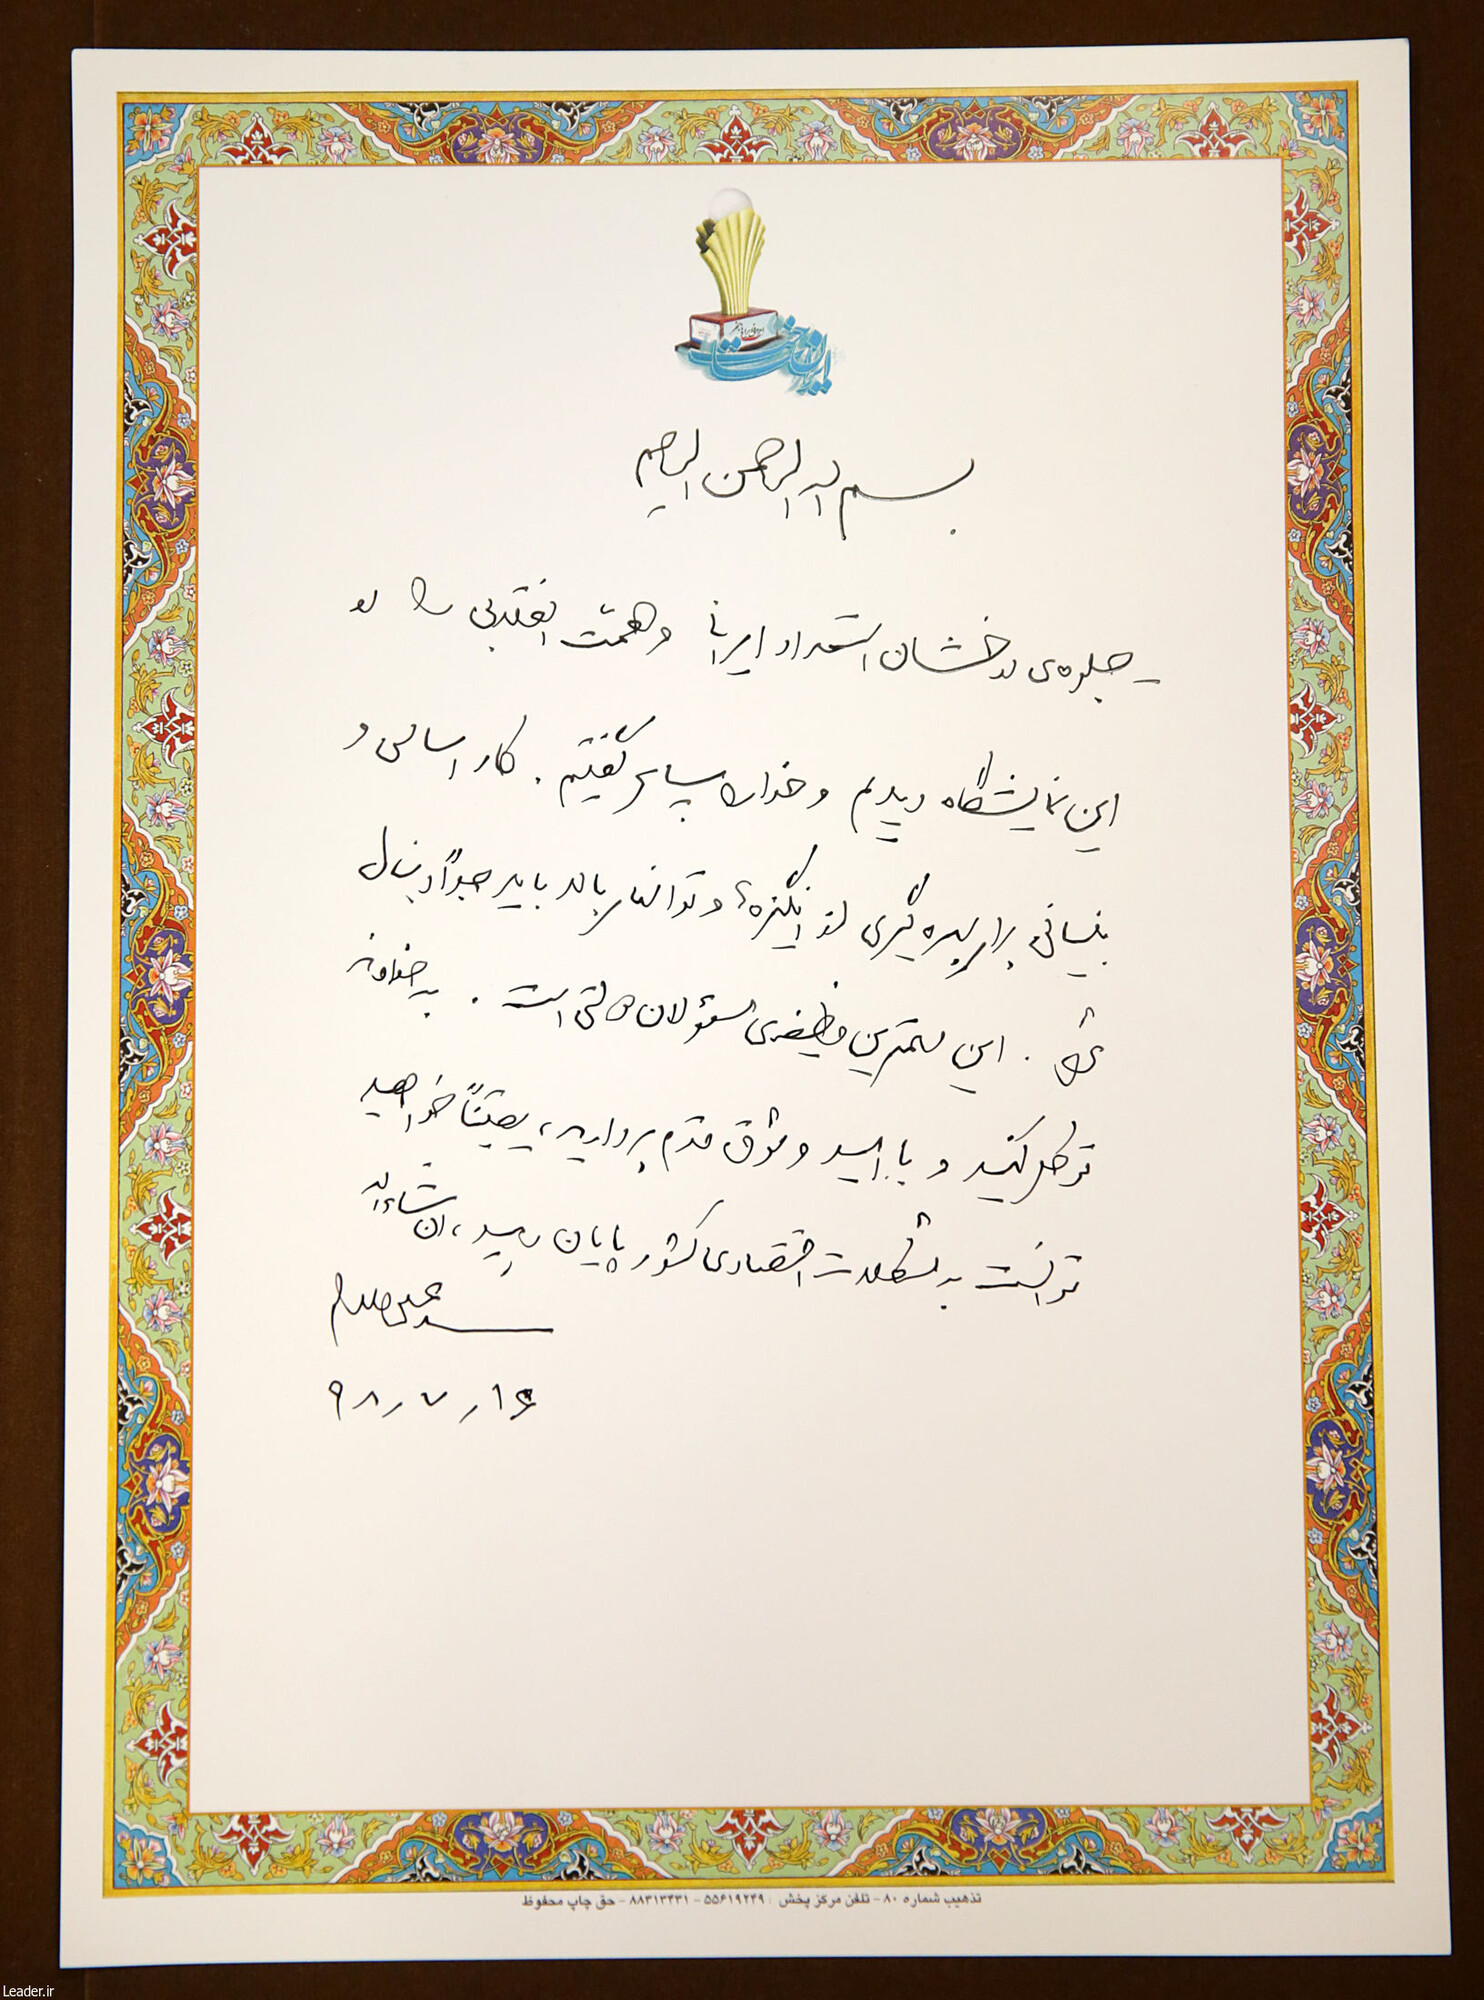 ایران ساخت
بسم الله الرحمن الرحیم
جلوه‌ی درخشان استعداد ایرانی و همّت انقلابی را در
این نمایشگاه دیدیم و خدا را سپاس گفتیم. کار اساسی و
بنیانی برای بهره‌گیری از انگیزه‌ و توانها باید جدّاً دنبال
شود. این مهمترین وظیفه‌ی مسئولان دولتی است. به خداوند
توکل کنید و با امید و شوق قدم بردارید، یقیناً خواهید
توانست به مشکلات اقتصادی کشور پایان دهید، ان شاءالله
سیدعلی خامنه‌ای
۹۸/۷/۱۶
تذهیب شماره ۸۰ - تلفن مرکز پخش : ۵۵۶۱۹۲۴۹ - ۸۸۳۱۳۴۳۱ - حق چاپ محفوظ
Leader.ir